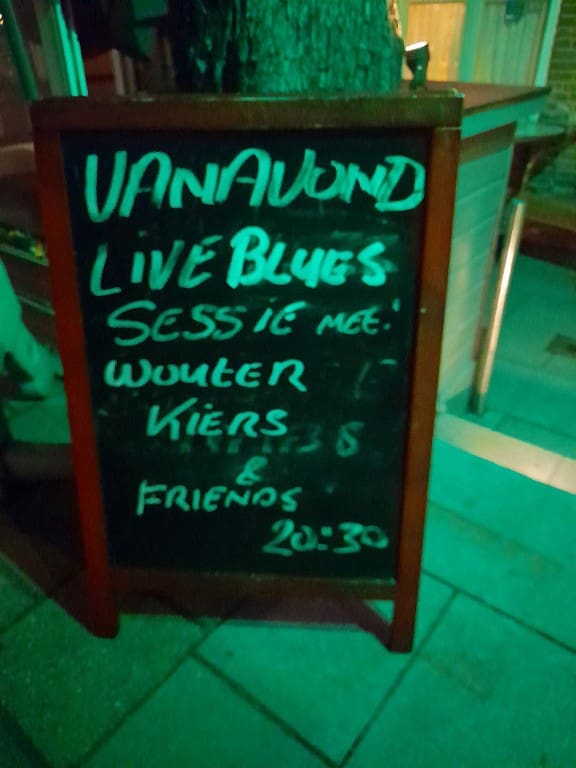 VANAVOND
LIVE BLUES
SESSIE MET:
WOUTER
KIERS
&
FRIENDS
20:30